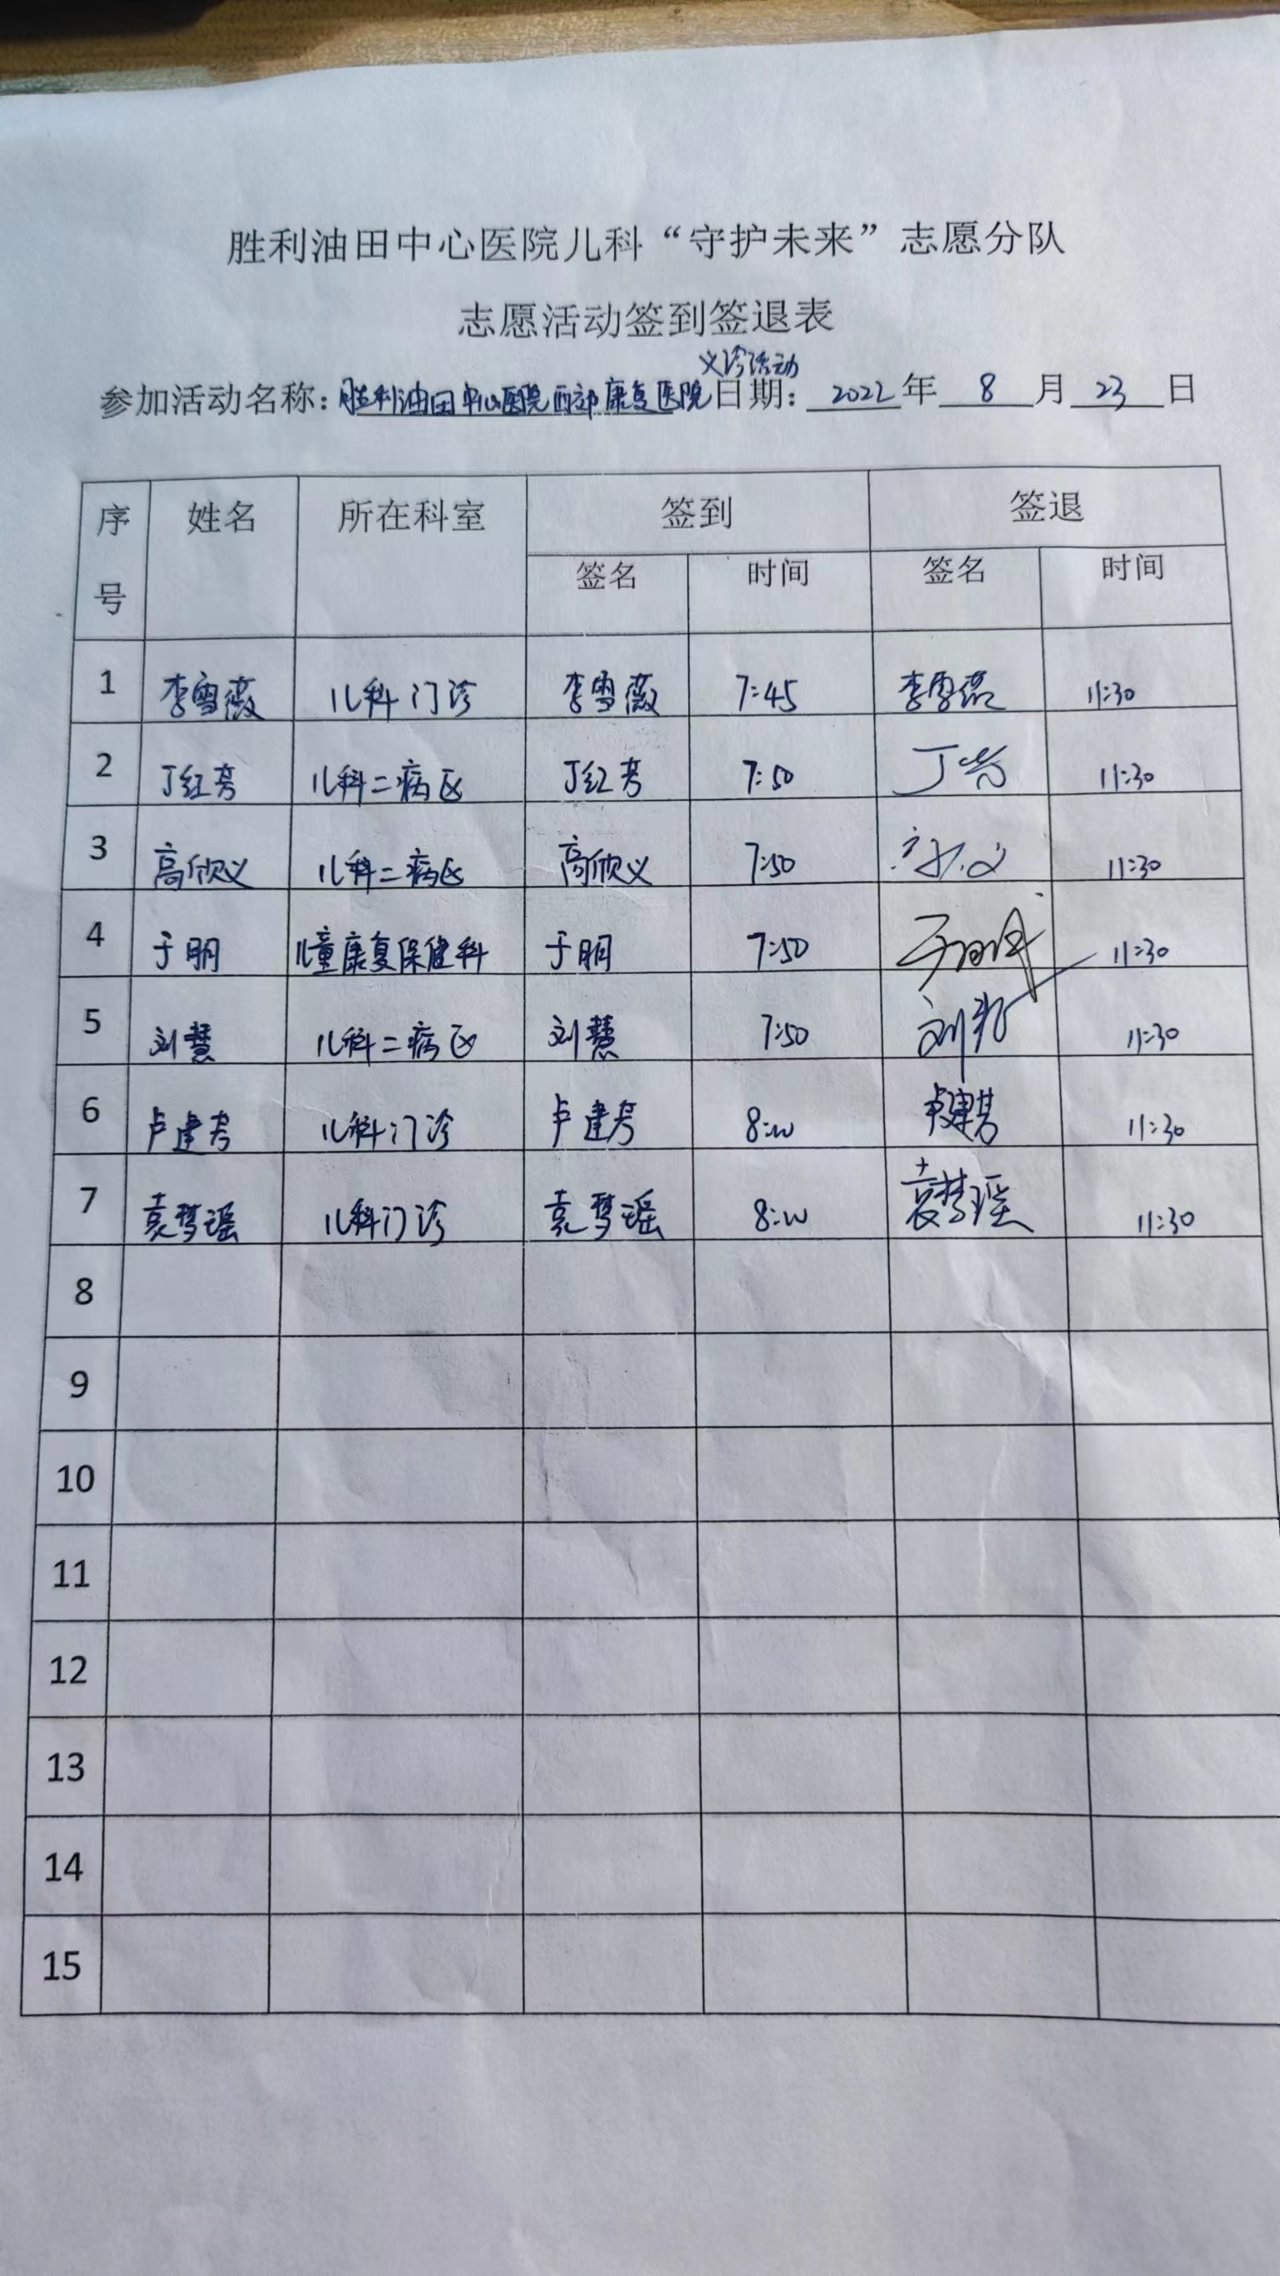 胜利油田中心医院儿科“守护未来”志愿分队
志愿活动签到签退表
义诊活动
参加活动名称：胜利油田中心医院西部康复医院 日期：2022年8月23日
序号 姓名 所在科室 签到 签退
签名 时间 签名 时间
1 李雪薇 儿科门诊 李雪薇 7:45 李雪薇 11:30
2 丁红芳 儿科二病区 丁红芳 7:50 11:30
3 高欣义 儿科二病区 高欣义 7:50 11:30
4 于明 儿童康复保健科 于明 7:50 11:30
5 刘慧 儿科二病区 刘慧 7:50 刘慧 11:30
6 卢建芳 儿科门诊 卢建芳 8:00 卢建芳 11:30
7 袁梦瑶 儿科门诊 袁梦瑶 8:00 袁梦瑶 11:30
8
9
10
11
12
13
14
15